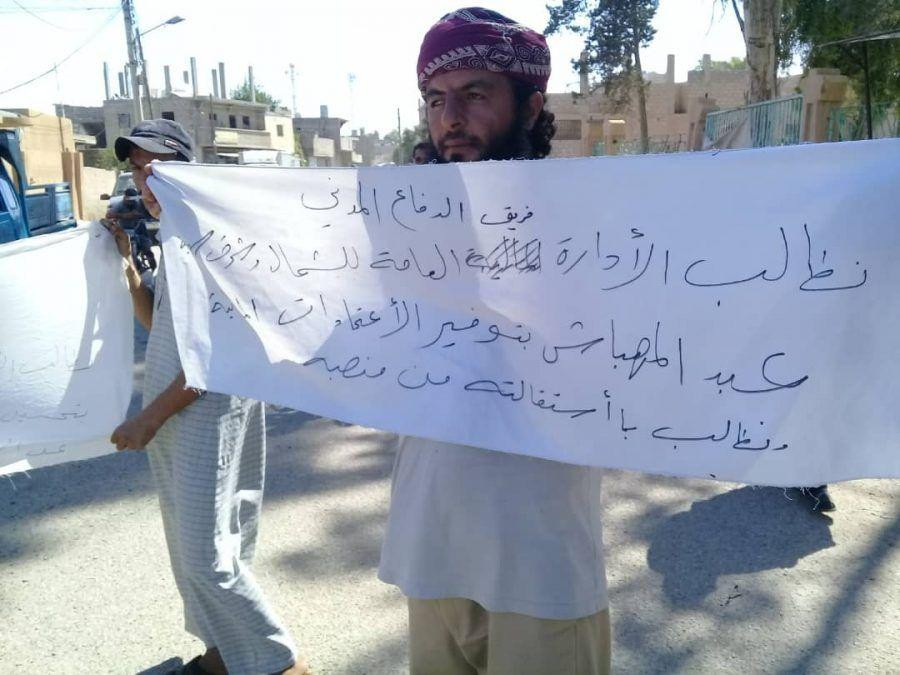 فريق الدفاع المدني
نطالب الأدارة العامة للشمال وشرق
عبد المهباش بتوفير الأعتمادات
ونطالب باأستقالته من منصبه
نطالب